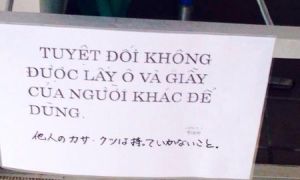 TUYỆT ĐỐI KHÔNG
ĐƯỢC LẤY Ô VÀ GIẦY
CỦA NGƯỜI KHÁC ĐỂ
DÙNG.
他人のカサ・クツは持っていかないこと。